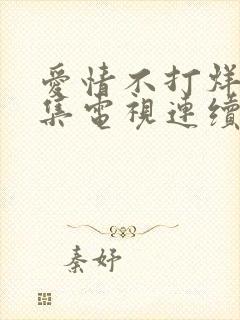 愛情不打烊
集電視連續
秦妤